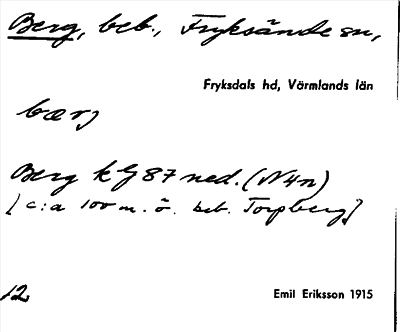 Berg, beb., Fryksände sn,
Fryksdals hd, Värmlands län
bærj
Berg kG 87 ned. (N4n)
[c:a 100 m. ö. beb. Torpberg]
12
Emil Eriksson 1915